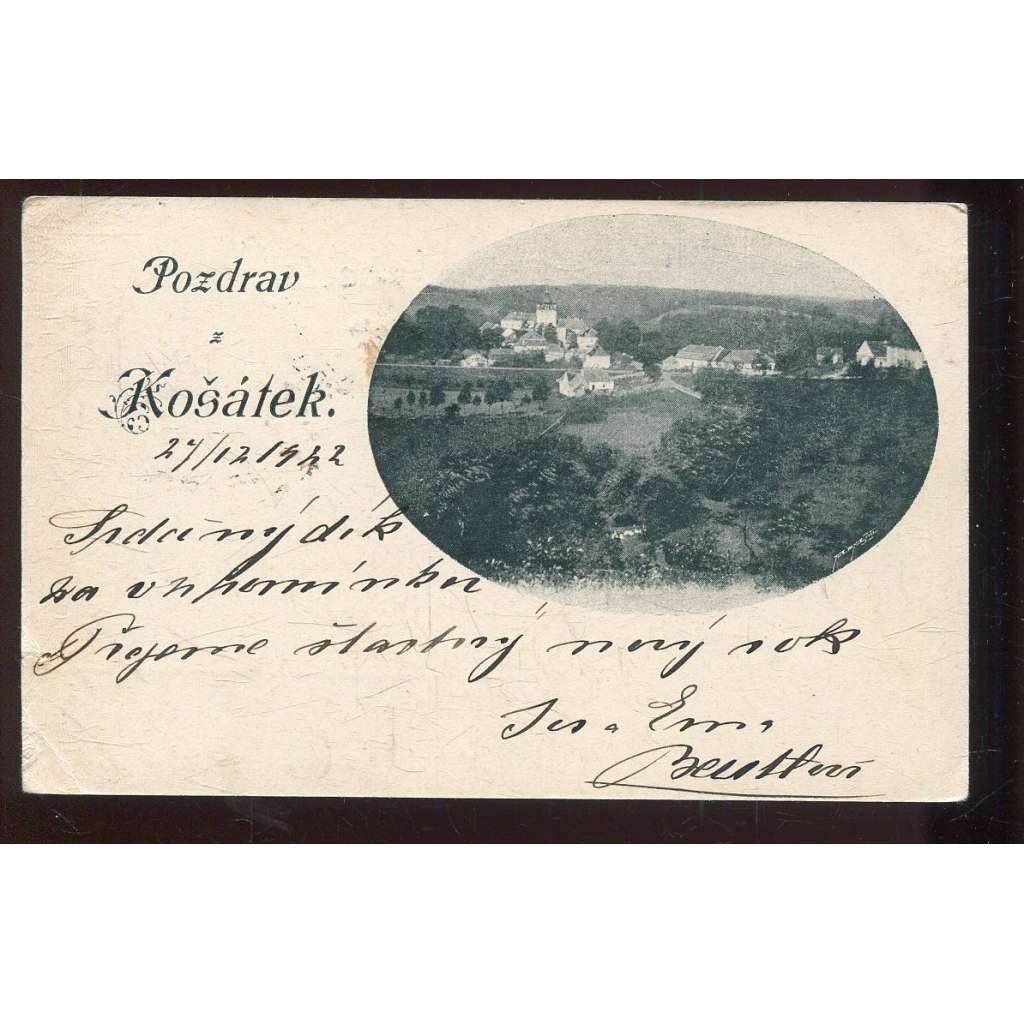 Pozdrav
z
Košátek.
27/12 1922
Srdečný dík
za vzpomínku
Přejeme šťastný nový rok